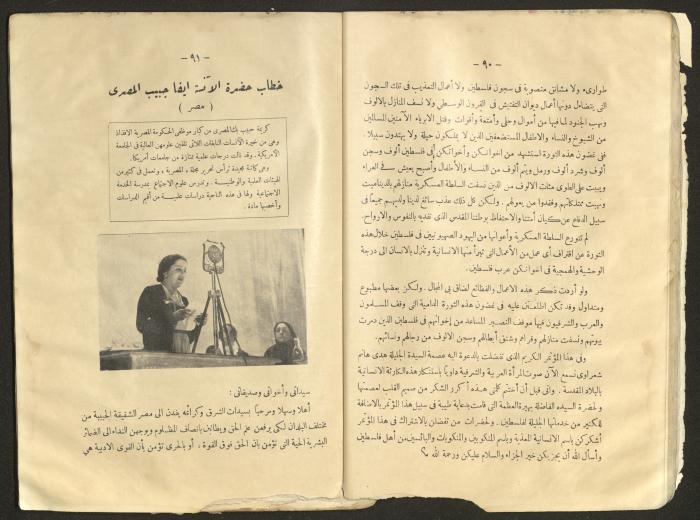 — ٩٠ —
طوارىء ولا مشانق منصوبة فى سجون فلسطين ولا أعمال التعذيب فى تلك السجون
التى يتضاءل دونها أعمال ديوان التفتيش فى القرون الوسطى ولا نسف المنازل بالالوف
ونهب الجنود لما فيها من أموال وحلى وأمتعة وأقوات وقتل الابرياء الآمنين المسالمين
من الشيوخ والنساء والاطفال المستضعفين الذين لا يملكون حيلة ولا يهتدون سبيلا .
ففى غضون هذه الثورة استشهد من اخوانكن وأخواتكن فى فلسطين ألوف وسجن
ألوف وشرد ألوف ورمل ويتم ألوف من النساء والأطفال وأصبح يعيش فى العراء
ويبيت على الطوى مئات الالوف من الذين نسفت السلطة العسكرية منازلهم بالديناميت
ونهبت ممتلكاتهم وفقدوا من يعولهم . ولكن كل ذلك عذب سائغ لدينا ولديهم جميعاً فى
سبيل الدفاع عن كيان أمتنا والاحتفاظ بوطننا المقدس الذى نفديه بالنفوس والارواح .
لم تتورع السلطة العسكرية وأعوانها من اليهود الصهيونيين فى فلسطين خلال هذه
الثورة عن اقتراف أى عمل من الأعمال التى تبرأ منها الانسانية وتنزل بالانسان الى درجة
الوحشية والهمجية فى اخوانكن عرب فلسطين .
ولو أردت ذكر هذه الاعمال والفظائع لضاق بى المجال . ولكن بعضها مطبوع
ومتداول وقد تكن اطلعتن عليه فى غضون هذه الثورة الدامية التى وقف المسلمون
والعرب والشرقيون فيها موقف النصير المساعد من إخوانهم فى فلسطين الذين دمرت
بيوتهم ونسفت منازلهم وقراهم وشنق أبطالهم وسجن الالوف من رجالهم ونسائهم .
وفى هذا المؤتمر الكريم الذى تفضلت بالدعوة اليه عصمة السيدة الجليلة هدى هانم
شعراوى نسمع الآن صوت المرأة العربية والشرقية داوياً باستنكار هذه الكارثة الانسانية
بالبلاد المقدسة . وانى قبل أن أختتم كلمتى هذه أكرر الشكر من صميم القلب لعصمتها
ولحضرة السيده الفاضلة بهيرة العظمة التى قامت بدعاية طيبة فى سبيل هذا المؤتمر بالاضافة
لكثير من خدماتها الجليلة لفلسطين . ولحضرات من تفضلن بالاشتراك فى هذا المؤتمر
أشكركن باسم الانسانية المعذبة وباسم المنكوبين والمنكوبات والبائسين من أهل فلسطين
وأسأل الله أن يجزيكن خير الجزاء والسلام عليكن ورحمة الله
— ٩١ —
خطاب حضرة الآنسة ايفا حبيب المصرى
( مصر )
كريمة حبيب بك المصرى من كبار موظفى الحكومة المصرية الافذاذ
وهى من خيرة الآنسات النابغات اللاتى تلقين علومهن العالية فى الجامعة
الأمريكية . وقد نالت درجات علمية ممتازة من جامعات أمريكا .
وهى كاتبة مجيدة ترأس تحرير مجلة « المصرية » وتعمل فى كثير من
الهيئات العلمية والوطنية . وتدرس علوم الاجتماع بمدرسة الخدمة
الاجتماعية ولها فى هذه الناحية دراسات علمية من أقيم الدراسات
وأخصبها مادة .
سيداتى وأخواتى وصديقاتى :
أهلا وسهلا ومرحباً بسيدات الشرق وكرائمه يفدن الى مصر الشقيقة الحبيبة من
مختلف البلدان لكى يرفعن علم الحق ويطالبن بانصاف المظلوم ويوجهن النداء الى الضمائر
البشرية الحية التى تؤمن بأن الحق فوق القوة ، أو بالحرى تؤمن بأن القوى الادبية هى